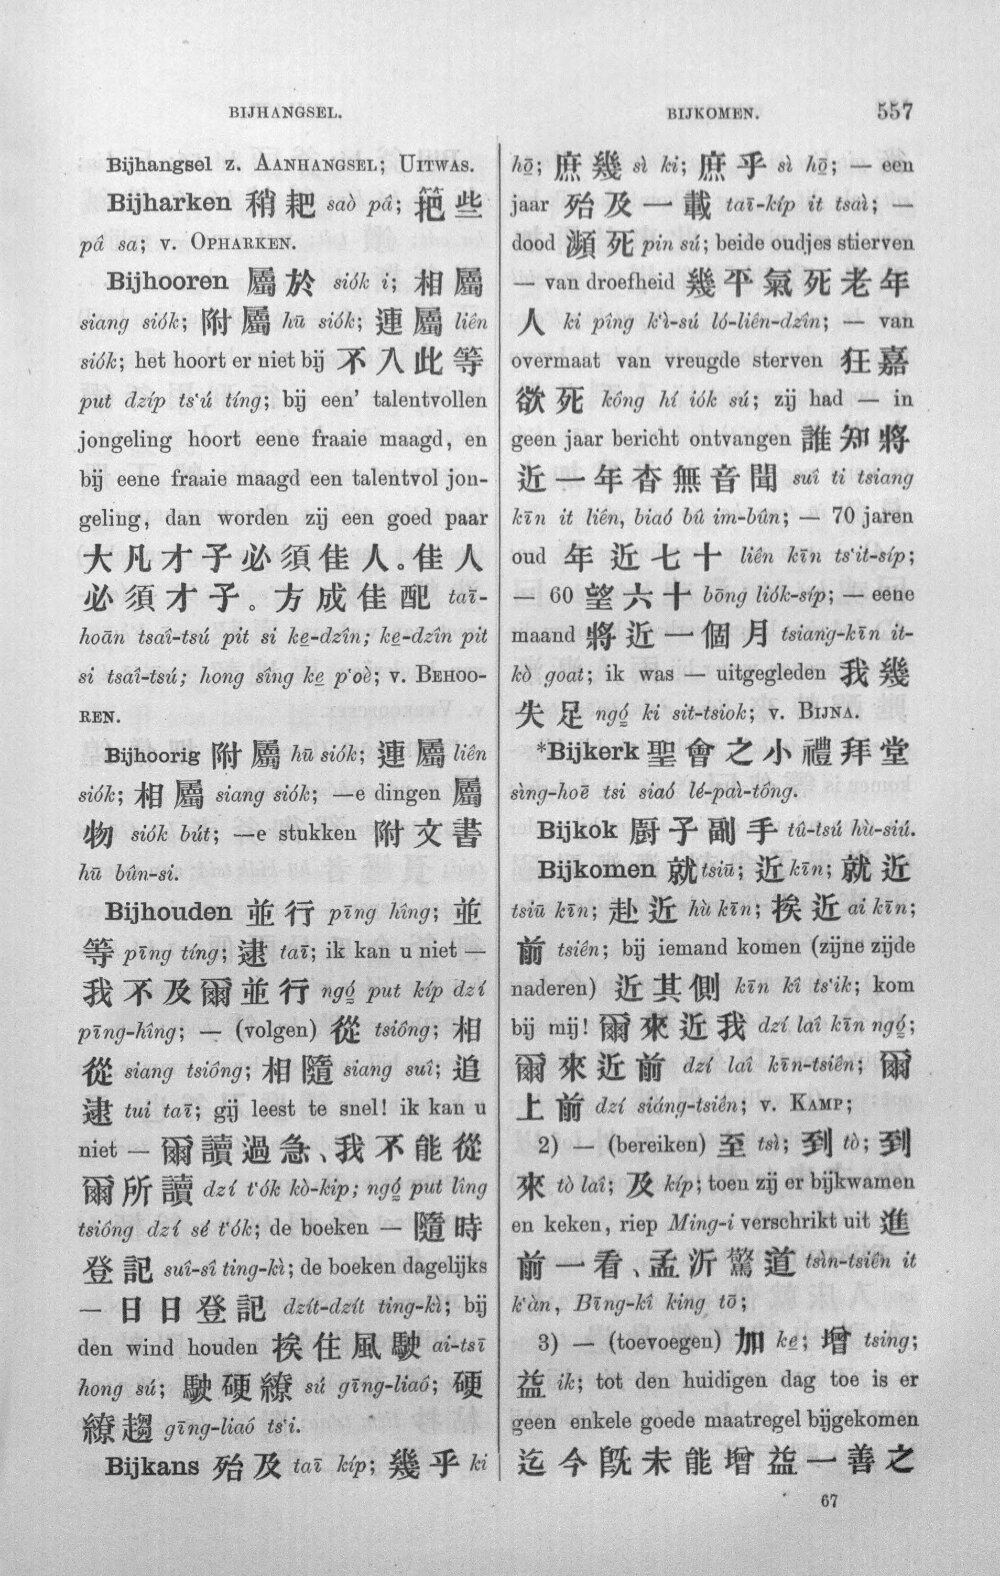 BIJHANGSEL.
BIJKOMEN.
557
Bijhangsel z. AANHANGSEL; UITWAS.
Bijharken 稍耙 saò pâ; 筢些
pâ sa; v. OPHARKEN.
Bijhooren 屬於 siók i; 相屬
siang siók; 附屬 hū siók; 連屬 liên
siók; het hoort er niet bij 不入此等
put dzíp ts‘ú tíng; bij een’ talentvollen
jongeling hoort eene fraaie maagd, en
bij eene fraaie maagd een talentvol jon-
geling, dan worden zij een goed paar
大凡才子必須佳人。佳人
必須才子。方成佳配 taī-
hoān tsaî-tsú pit si ke̱-dzîn; ke̱-dzîn pit
si tsaî-tsú; hong sîng ke̱ p‘oè; v. BEHOO-
REN.
Bijhoorig 附屬 hū siók; 連屬 liên
siók; 相屬 siang siók; —e dingen 屬
物 siók bút; —e stukken 附文書
hū bûn-si.
Bijhouden 並行 pīng hîng; 並
等 pīng tíng; 逮 taī; ik kan u niet —
我不及爾並行 ngó̱ put kíp dzí
pīng-hîng; — (volgen) 從 tsiông; 相
從 siang tsiông; 相隨 siang suî; 追
逮 tui taī; gij leest te snel! ik kan u
niet — 爾讀過急、我不能從
爾所讀 dzí t‘ók kò-kip; ngó̱ put lîng
tsiông dzí sé t‘ók; de boeken — 隨時
登記 suî-sî ting-kì; de boeken dagelijks
— 日日登記 dzít-dzít ting-kì; bij
den wind houden 挨住風駛 ai-tsī
hong sú; 駛硬繚 sú gīng-liaó; 硬
繚趨 gīng-liaó ts‘i.
Bijkans 殆及 taī kíp; 幾乎 ki
hō̱; 庶幾 sì ki; 庶乎 sì hō̱; — een
jaar 殆及一載 taī-kíp it tsaì; —
dood 瀕死 pin sú; beide oudjes stierven
— van droefheid 幾平氣死老年
人 ki pîng k‘ì-sú ló-liên-dzîn; — van
overmaat van vreugde sterven 狂嘉
欲死 kông hí iók sú; zij had — in
geen jaar bericht ontvangen 誰知將
近一年杳無音聞 suî ti tsiang
kīn it liên, biaó bû im-bûn; — 70 jaren
oud 年近七十 liên kīn ts‘it-síp;
— 60 望六十 bōng liók-síp; — eene
maand 將近一個月 tsiang-kīn it-
kò goat; ik was — uitgegleden 我幾
失足 ngó̱ ki sit-tsiok; v. BIJNA.
*Bijkerk 聖會之小禮拜堂
sìng-hoē tsi siaó lé-paì-tông.
Bijkok 厨子副手 tû-tsú hù-siú.
Bijkomen 就 tsiū; 近 kīn; 就近
tsiū kīn; 赴近 hù kīn; 挨近 ai kīn;
前 tsiên; bij iemand komen (zijne zijde
naderen) 近其側 kīn kî ts‘ik; kom
bij mij! 爾來近我 dzí laî kīn ngó̱;
爾來近前 dzí laî kīn-tsiên; 爾
上前 dzí siáng-tsiên; v. KAMP;
2) — (bereiken) 至 tsì; 到 tò; 到
來 tò laî; 及 kíp; toen zij er bijkwamen
en keken, riep Ming-i verschrikt uit 進
前一看、孟沂驚道 tsìn-tsiên it
k‘àn, Bīng-kî king tō;
3) — (toevoegen) 加 ke̱; 增 tsing;
益 ik; tot den huidigen dag toe is er
geen enkele goede maatregel bijgekomen
迄今旣未能增益一善之
67